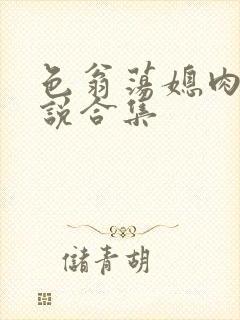 色翁荡媳肉
说合集
儲青胡